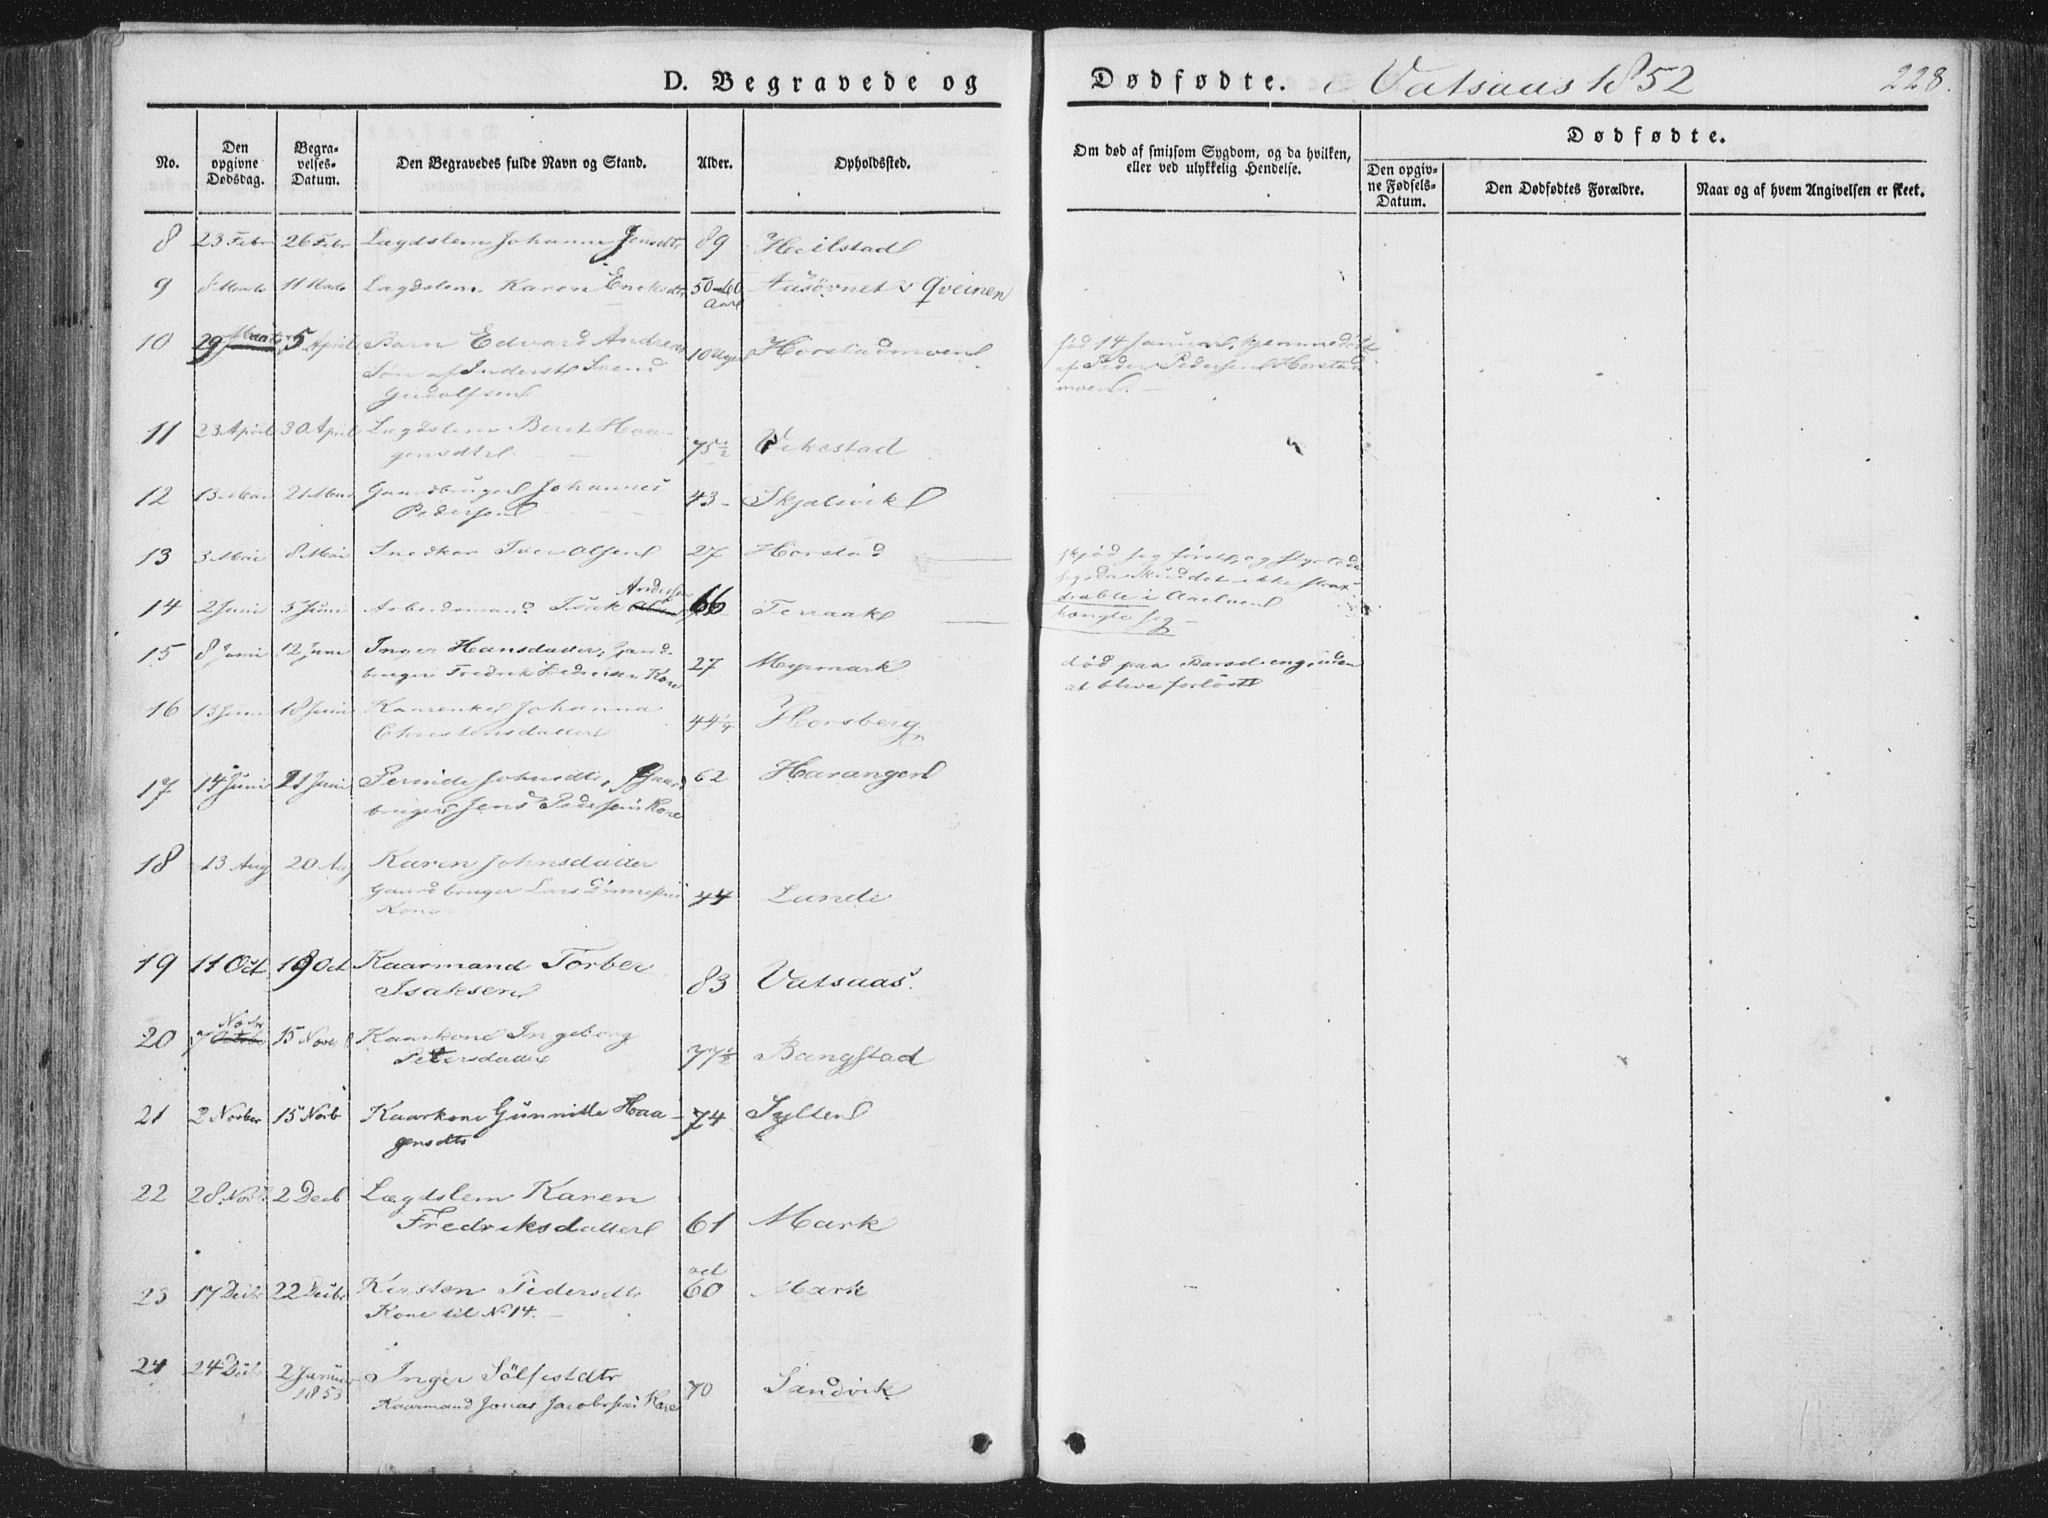 D. Begravede og Dødfødte. Vatsaas 1852 228.
No. Den opgivne Dødsdag. Begravelses-Datum. Den Begravedes fulde Navn og Stand. Alder. Opholdssted. Om død af smitsom Sygdom, og da hvilken, eller ved ulykkelig Hendelse. Dødfødte.
Den opgivne Fødsels-Datum. Den Dødfødtes Forældre. Naar og af hvem Angivelsen er skeet.
8 23 Febr 26 Febr Lægdslem Johanna Jensdtr 89 Heilstad
9 8 Marts 11 Marts Lægdslem Karen Ericksdtr 50-60 Aar Qveinen
10 29 Marts 5 April Barn Edvard Andreas 10 Uger Horstadmoen født 14 Januar, hjemmedøbt
Søn af Inderst Svend af Peder Pedersen Horstad
moen.
11 23 April 30 April Lægdslem Berit Haa-
gensdtr 75½ Vikestad
12 13 Mai 21 Mai Gaardbruger Johannes 43 Skjelsvik
Pedersen
13 3 Mai 8 Mai Snedker Iver Olsen 27 Horstad skjød seg først, og styrtede
seg, da Skuddet ikke strax
Andersen
14 2 Juni 5 Juni Arbeidsmand Isak 66 Terraak
hængte seg
15 8 Juni 12 Juni Inger Hansdatter, Gaard- 27 Myrmark død paa Barselseng, uden
bruger Fredrik Kone at blive forløst
16 13 Juni 18 Juni Kaarenke Johanna 44¼ Horsberg
Christensdatter
17 14 Juni 21 Juni Pernide Johnsdtr, Gaard 62 Harangen
bruger Jens Pedersens Kone
18 13 Aug 20 Aug Karen Johnsdatter
Gaardbruger Lars Tønnesens 44 Lande
Kone
19 11 Oct 19 Oct Kaarmand Torber
Isaksen 83 Vatsaas.
20 7 Novbr 15 Novb Kaarkone Ingeborg
Petersdatter 77½ Bangstad
21 2 Novber 15 Novb Kaarkone Gunnille Haa- 74 Sylten
gensdtr
22 28 Nov 2 Decb Lægdslem Karen
Fredriksdatter 61 Mark
23 17 Decbr 22 Decbr Kirsten Pedersdtr 60 Mark
Kone til No 14.
24 24 Decbr 2 Januar Inger Sölfestdtr
1853 Kaarmand Jonas Jacobsens Kone 70 Sandvik